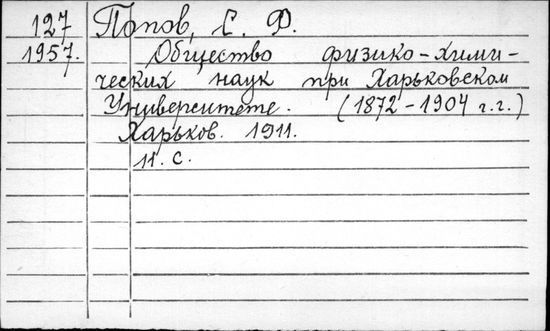 127 Попов, С. Ф.
1957. Общество физико-хими-
ческих наук при Харьковском
Университете. (1872-1904 г.г.)
Харьков. 1911.
11. с.